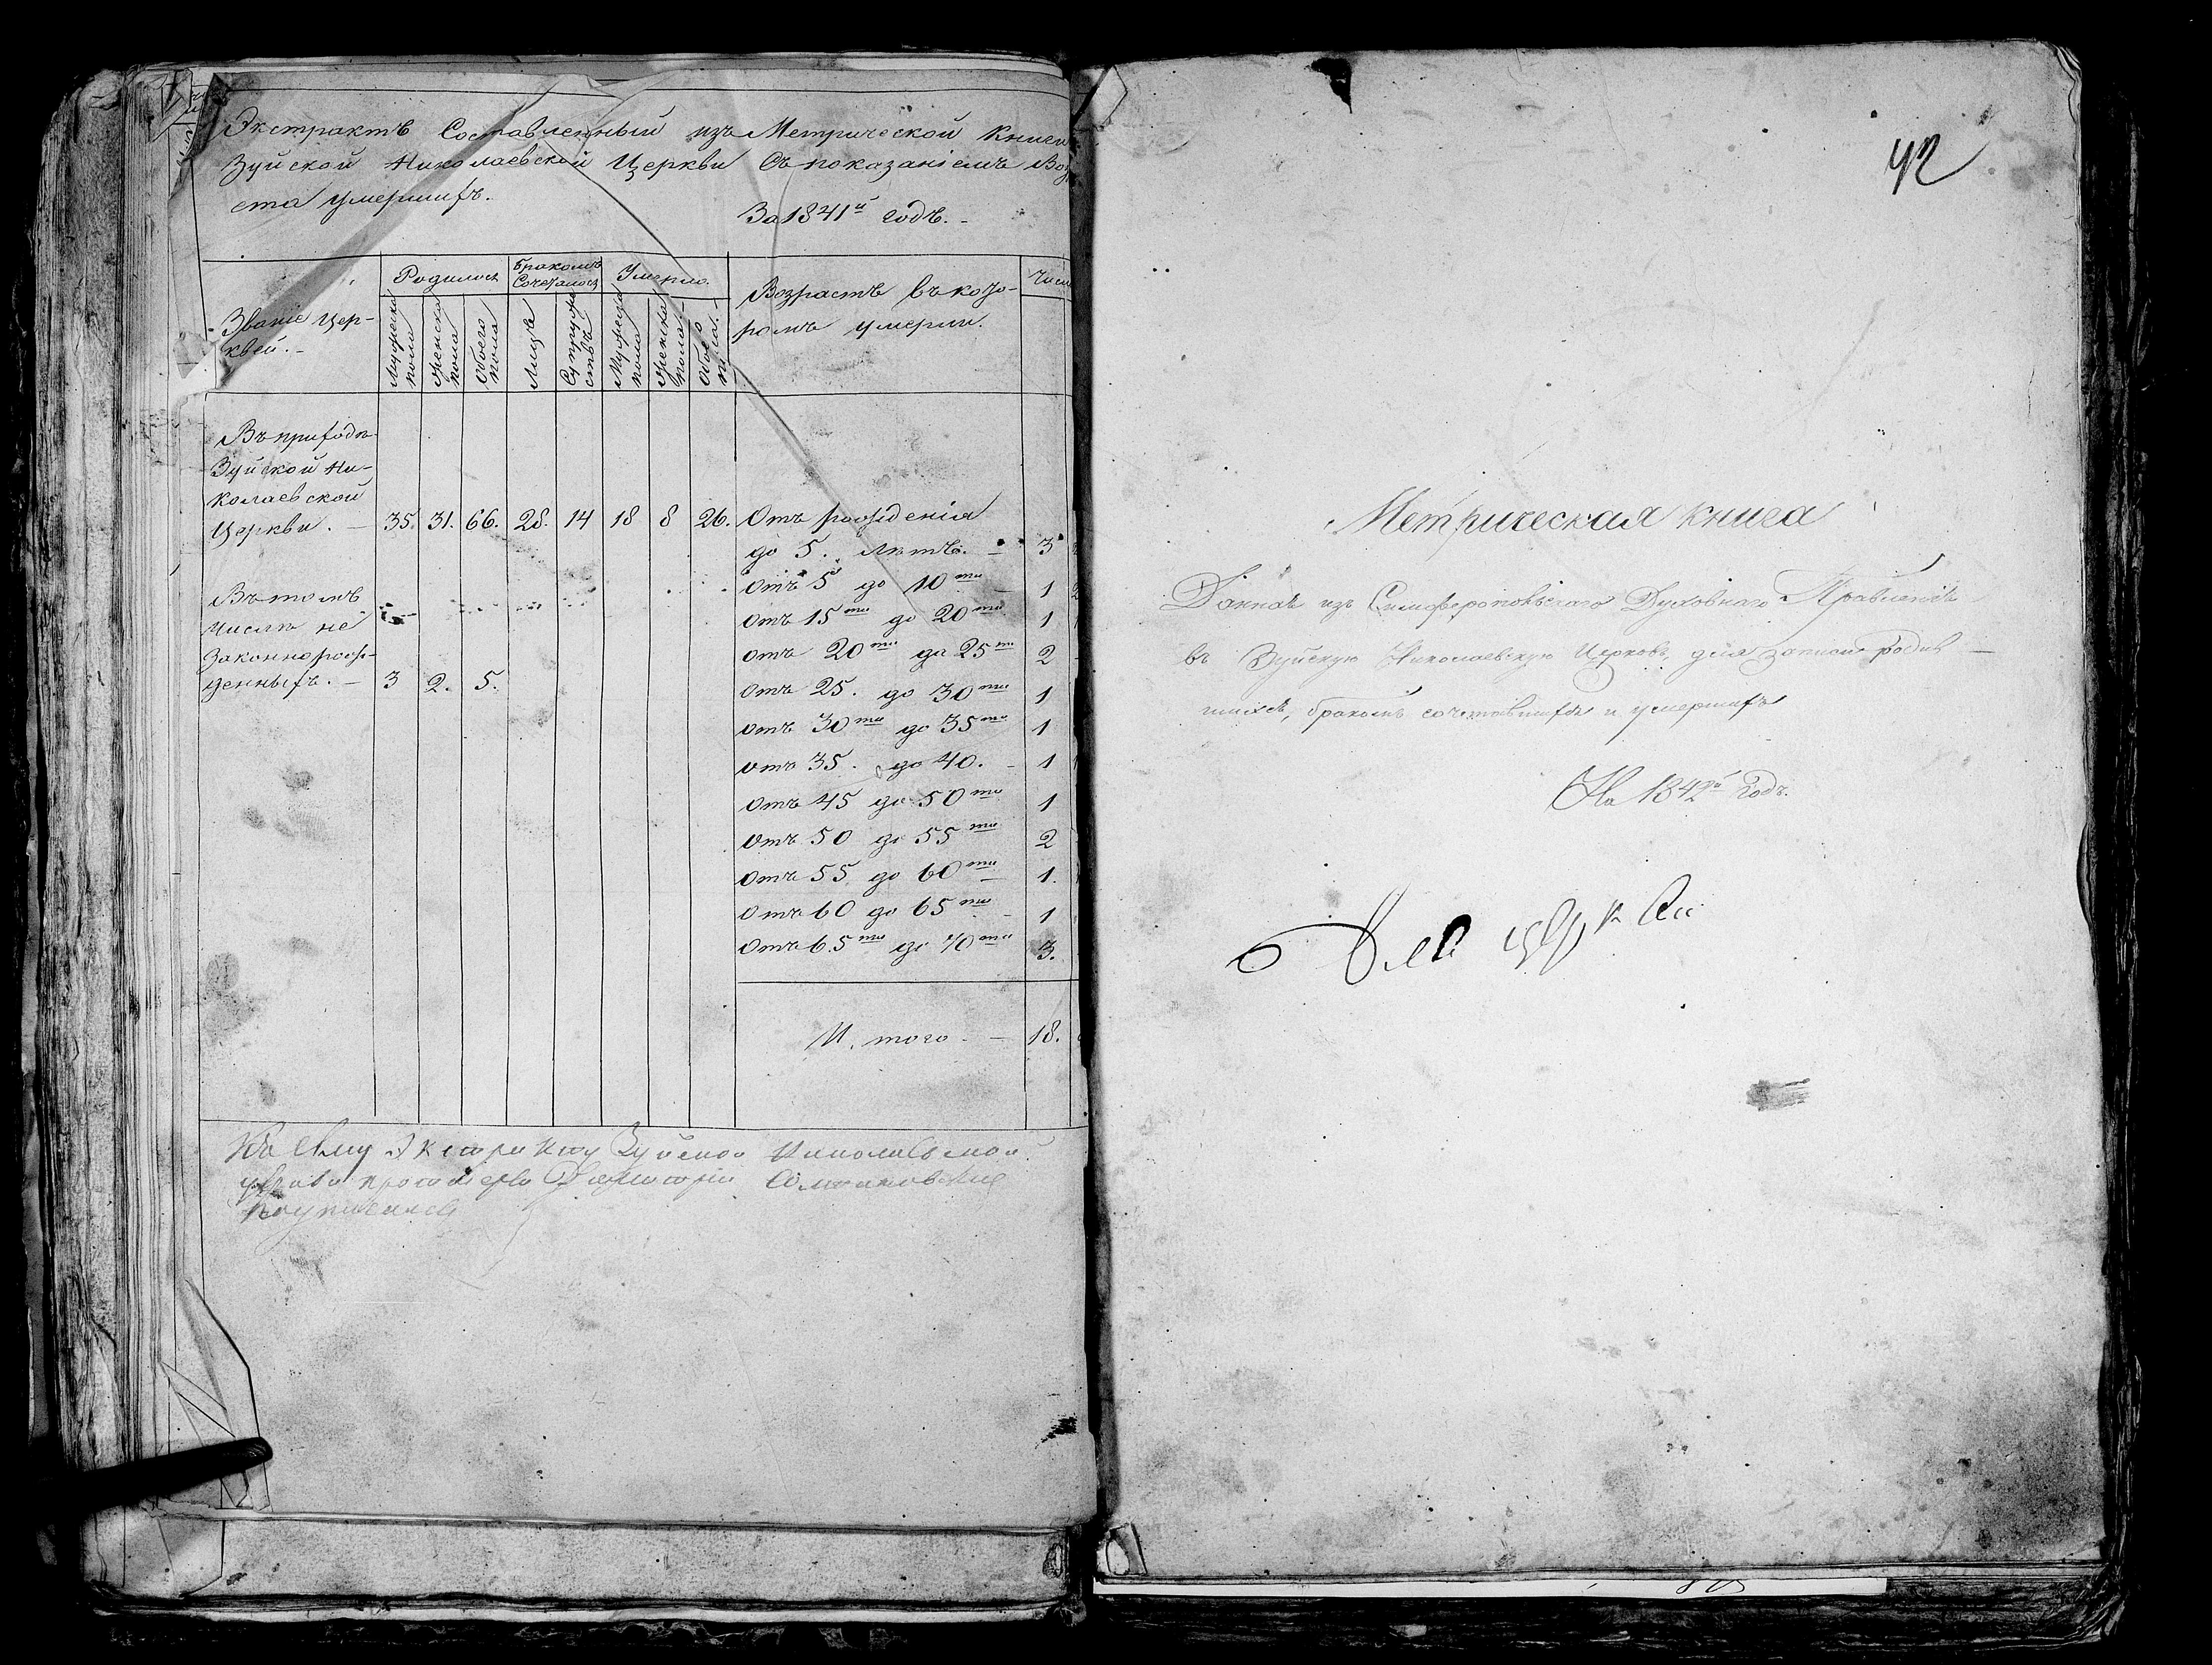 Экстрактъ Составленный изъ Метрической Книги
Зуйской Николаевской Церкви Съ показанiемъ Воз
ста умершихъ.
За 1841й годъ.-
Званiе Цер-
квей.-
Родилось
Бракомъ
Сочеталось
Умерло.
Возрастъ въ кото-
ромъ умерли.
Числ
Мужеска
пола
Женска
пола
Обоего
пола
Лицъ
Супруже
ствъ
Мужеска
пола
Женска
пола.
Обоего
пола.
Въ приходѣ
Зуйской Ни-
колаевской
Церкви. — 35. 31. 66. 28. 14 18 8 26. Отъ рожденiя
до 5. Лѣтъ. — 3
Отъ 5 до 10ти — 1 2
Въ томъ
Числѣ не
Законнорож-
денныхъ. — 3 2. 5.
отъ 15ти до 20ти 1
отъ 20ти до 25ти 2
отъ 25. до 30ти 1
отъ 30ти до 35ти 1
отъ 35. до 40. - 1
отъ 45 до 50ти 1
отъ 50 до 55ти 2
отъ 55 до 60ти 1.
отъ 60 до 65ти - 1
отъ 65ти до 70ти 3.
И, того. — 18.
Къ сему Экстракту Зуйской Николаевской
церкви протоіерей Димитрій
подписался
42
Метрическая книга
Данная изъ Симферопольскаго Духовнаго Правленія
въ Зуйскую Николаевскую Церковь, для записи родив —
шихся, бракомъ сочетавшихся и умершихъ
На 1842й Годъ.
Для церкви